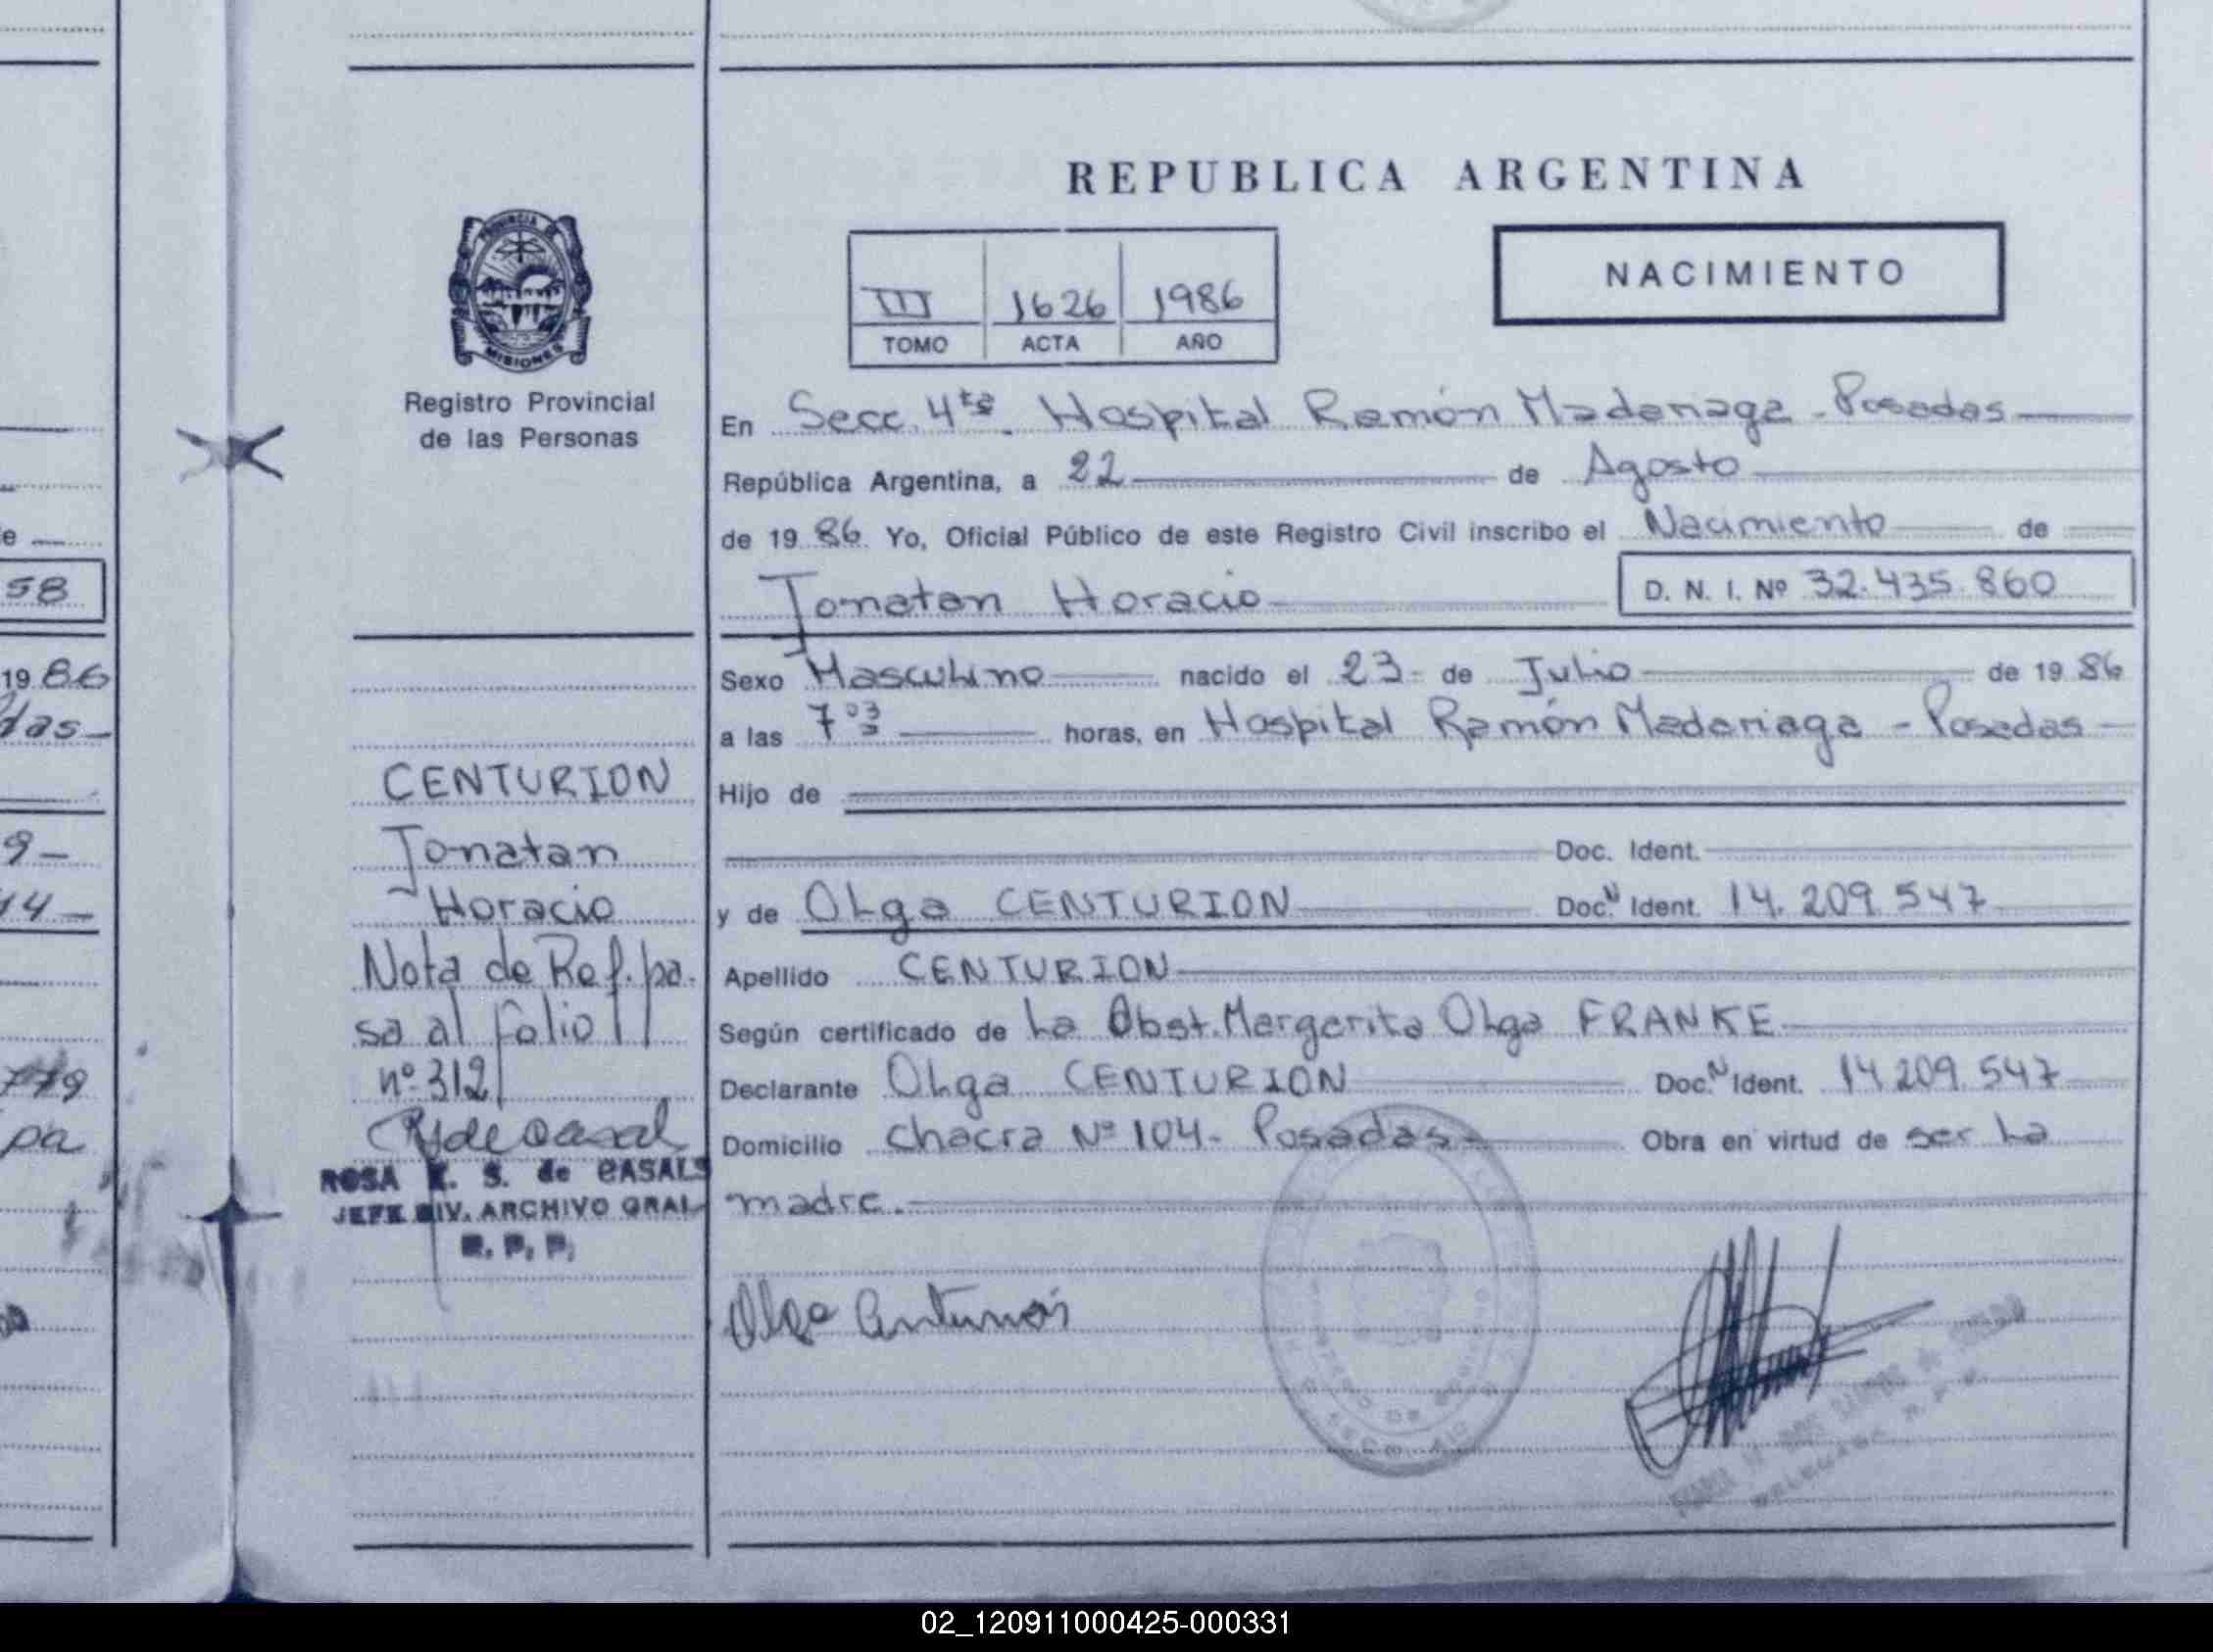 REPUBLICA ARGENTINA
PROVINCIA DE
MISIONES
Registro Provincial
de las Personas
III 1626 1986
TOMO ACTA AÑO
NACIMIENTO
En Secc. 4ta. Hospital Ramón Madariaga - Posadas
República Argentina, a 22 de Agosto
de 1986 Yo, Oficial Público de este Registro Civil inscribo el Nacimiento de
Jonatan Horacio D. N. I. Nº 32.435.860
Sexo Masculino nacido el 23 de Julio de 1986
a las 7 03 horas, en Hospital Ramón Madariaga - Posadas -
Hijo de
Doc. Ident.
y de Olga CENTURION Doc. N Ident. 14.209.547
Apellido CENTURION
Según certificado de La Obst. Margarita Olga FRANKE
Declarante Olga CENTURION Doc. N Ident. 14.209.547
Domicilio Chacra Nº 104 - Posadas - Obra en virtud de ser La
madre.
CENTURION
Jonatan
Horacio
Nota de Ref. pa.
sa al folio
nº 312
ROSA E. S. de CASALS
JEFE DIV. ARCHIVO GRAL
R. P. P.
58
1986
das -
9 -
14 -
779
pa
02_120911000425-000331